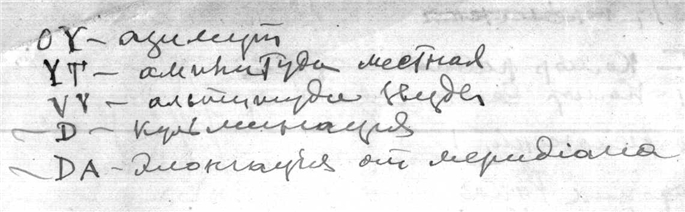 ОҮ – азимут
ҮТ – амплитуда местная
VY – альтитуда звезды
~ D – кульминация
~ DA – Элонгация от меридіана